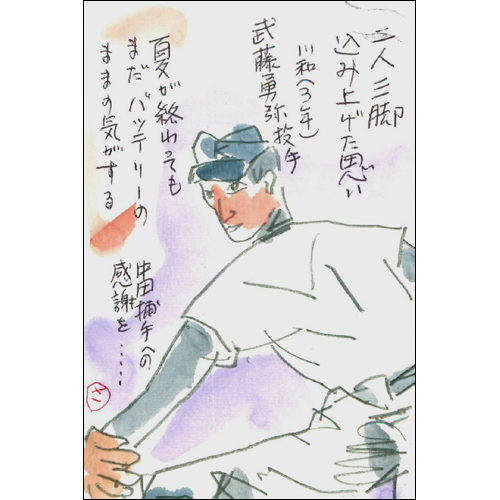 二人三脚
込み上げた思い
川和(3年)
武藤勇弥投手
夏が終わっても
まだバッテリーの
ままの気がする
中田捕手への
感謝を……
さ